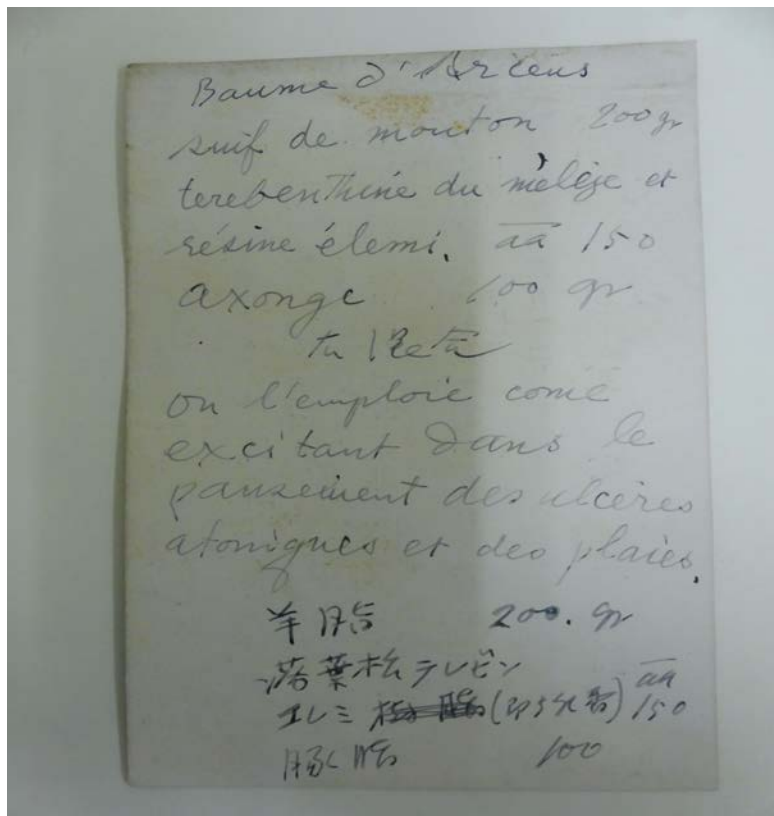 Baume d'Arceus
suif de mouton 200 gr
terebenthine du mélèze et
résine élemi. aa 150
axonge 100 gr
on l'emploie come
excitant dans le
pansement des ulcères
atoniques et des plaies.
羊脂 200. gr
落葉松テレビン
エレミ aa 150
豚脂 100